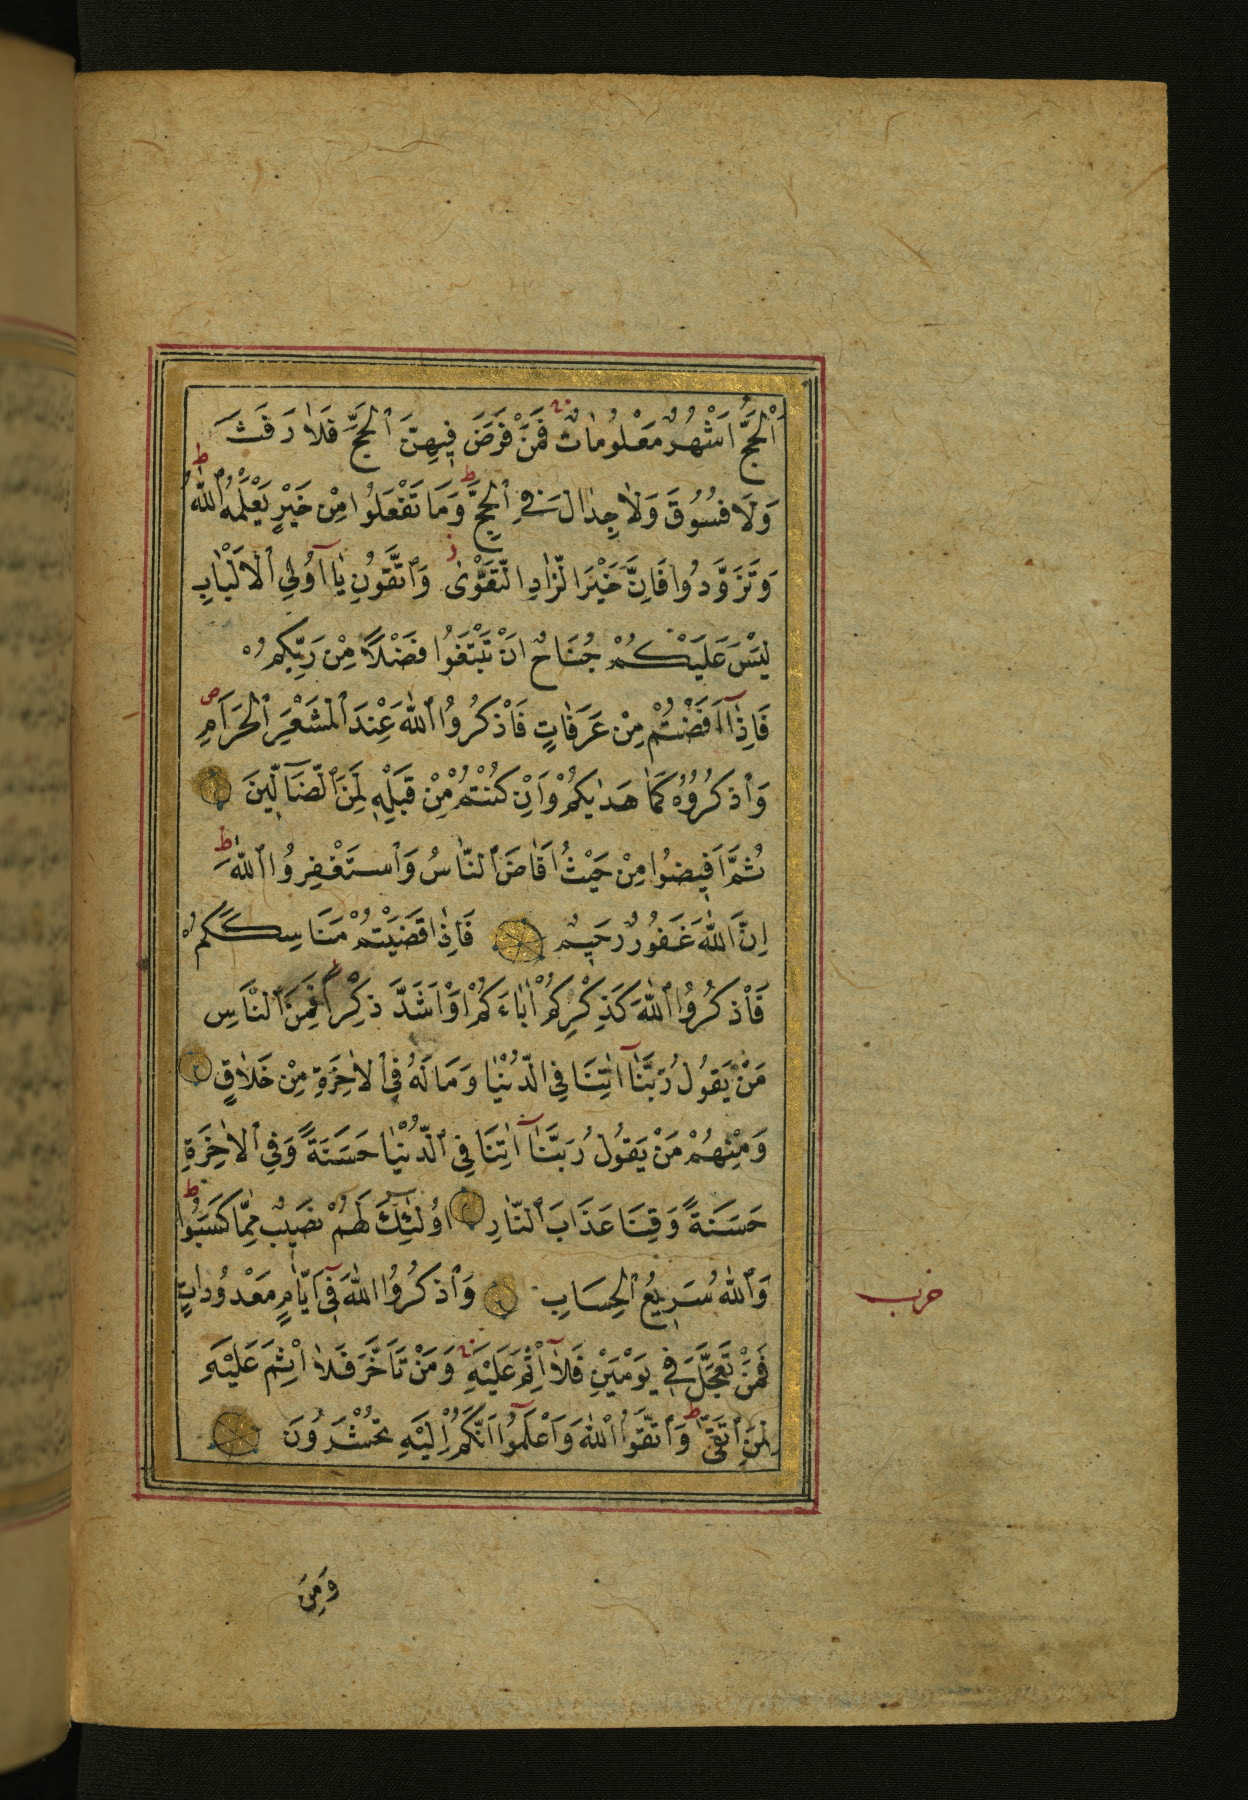 اَلْحَجُّ اَشْهُرٌ مَعْلُومَاتٌ فَمَنْ فَرَضَ فِيهِنَّ الْحَجَّ فَلَا رَفَثَ
وَلَا فُسُوقَ وَلَا جِدَالَ فِي الْحَجِّ ط وَمَا تَفْعَلُوا مِنْ خَيْرٍ يَعْلَمْهُ اللّٰهُ ط
وَتَزَوَّدُوا فَاِنَّ خَيْرَ الزَّادِ التَّقْوٰى ز وَاتَّقُونِ يَٓا اُولِي الْاَلْبَابِ
لَيْسَ عَلَيْكُمْ جُنَاحٌ اَنْ تَبْتَغُوا فَضْلًا مِنْ رَبِّكُمْ
فَاِذَٓا اَفَضْتُمْ مِنْ عَرَفَاتٍ فَاذْكُرُوا اللّٰهَ عِنْدَ الْمَشْعَرِ الْحَرَامِ ص
وَاذْكُرُوهُ كَمَا هَدٰيكُمْ وَاِنْ كُنْتُمْ مِنْ قَبْلِهٖ لَمِنَ الضَّٓالِّينَ
ثُمَّ اَفِيضُوا مِنْ حَيْثُ اَفَاضَ النَّاسُ وَاسْتَغْفِرُوا اللّٰهَ ط
اِنَّ اللّٰهَ غَفُورٌ رَحِيمٌ فَاِذَا قَضَيْتُمْ مَنَاسِكَكُمْ
فَاذْكُرُوا اللّٰهَ كَذِكْرِكُمْ اٰبَاءَكُمْ اَوْ اَشَدَّ ذِكْرًا ط فَمِنَ النَّاسِ
مَنْ يَقُولُ رَبَّنَٓا اٰتِنَا فِي الدُّنْيَا وَمَا لَهُ فِي الْاٰخِرَةِ مِنْ خَلَاقٍ
وَمِنْهُمْ مَنْ يَقُولُ رَبَّنَٓا اٰتِنَا فِي الدُّنْيَا حَسَنَةً وَفِي الْاٰخِرَةِ
حَسَنَةً وَقِنَا عَذَابَ النَّارِ اُولٰٓئِكَ لَهُمْ نَصِيبٌ مِمَّا كَسَبُوا ط
وَاللّٰهُ سَرِيعُ الْحِسَابِ وَاذْكُرُوا اللّٰهَ فِٓي اَيَّامٍ مَعْدُودَاتٍ
فَمَنْ تَعَجَّلَ فِي يَوْمَيْنِ فَلَٓا اِثْمَ عَلَيْهِ وَمَنْ تَاَخَّرَ فَلَا اِثْمَ عَلَيْهِ
لِمَنِ اتَّقٰى ط وَاتَّقُوا اللّٰهَ وَاعْلَمُٓوا اَنَّكُمْ اِلَيْهِ تُحْشَرُونَ
حزب
وَمِنَ